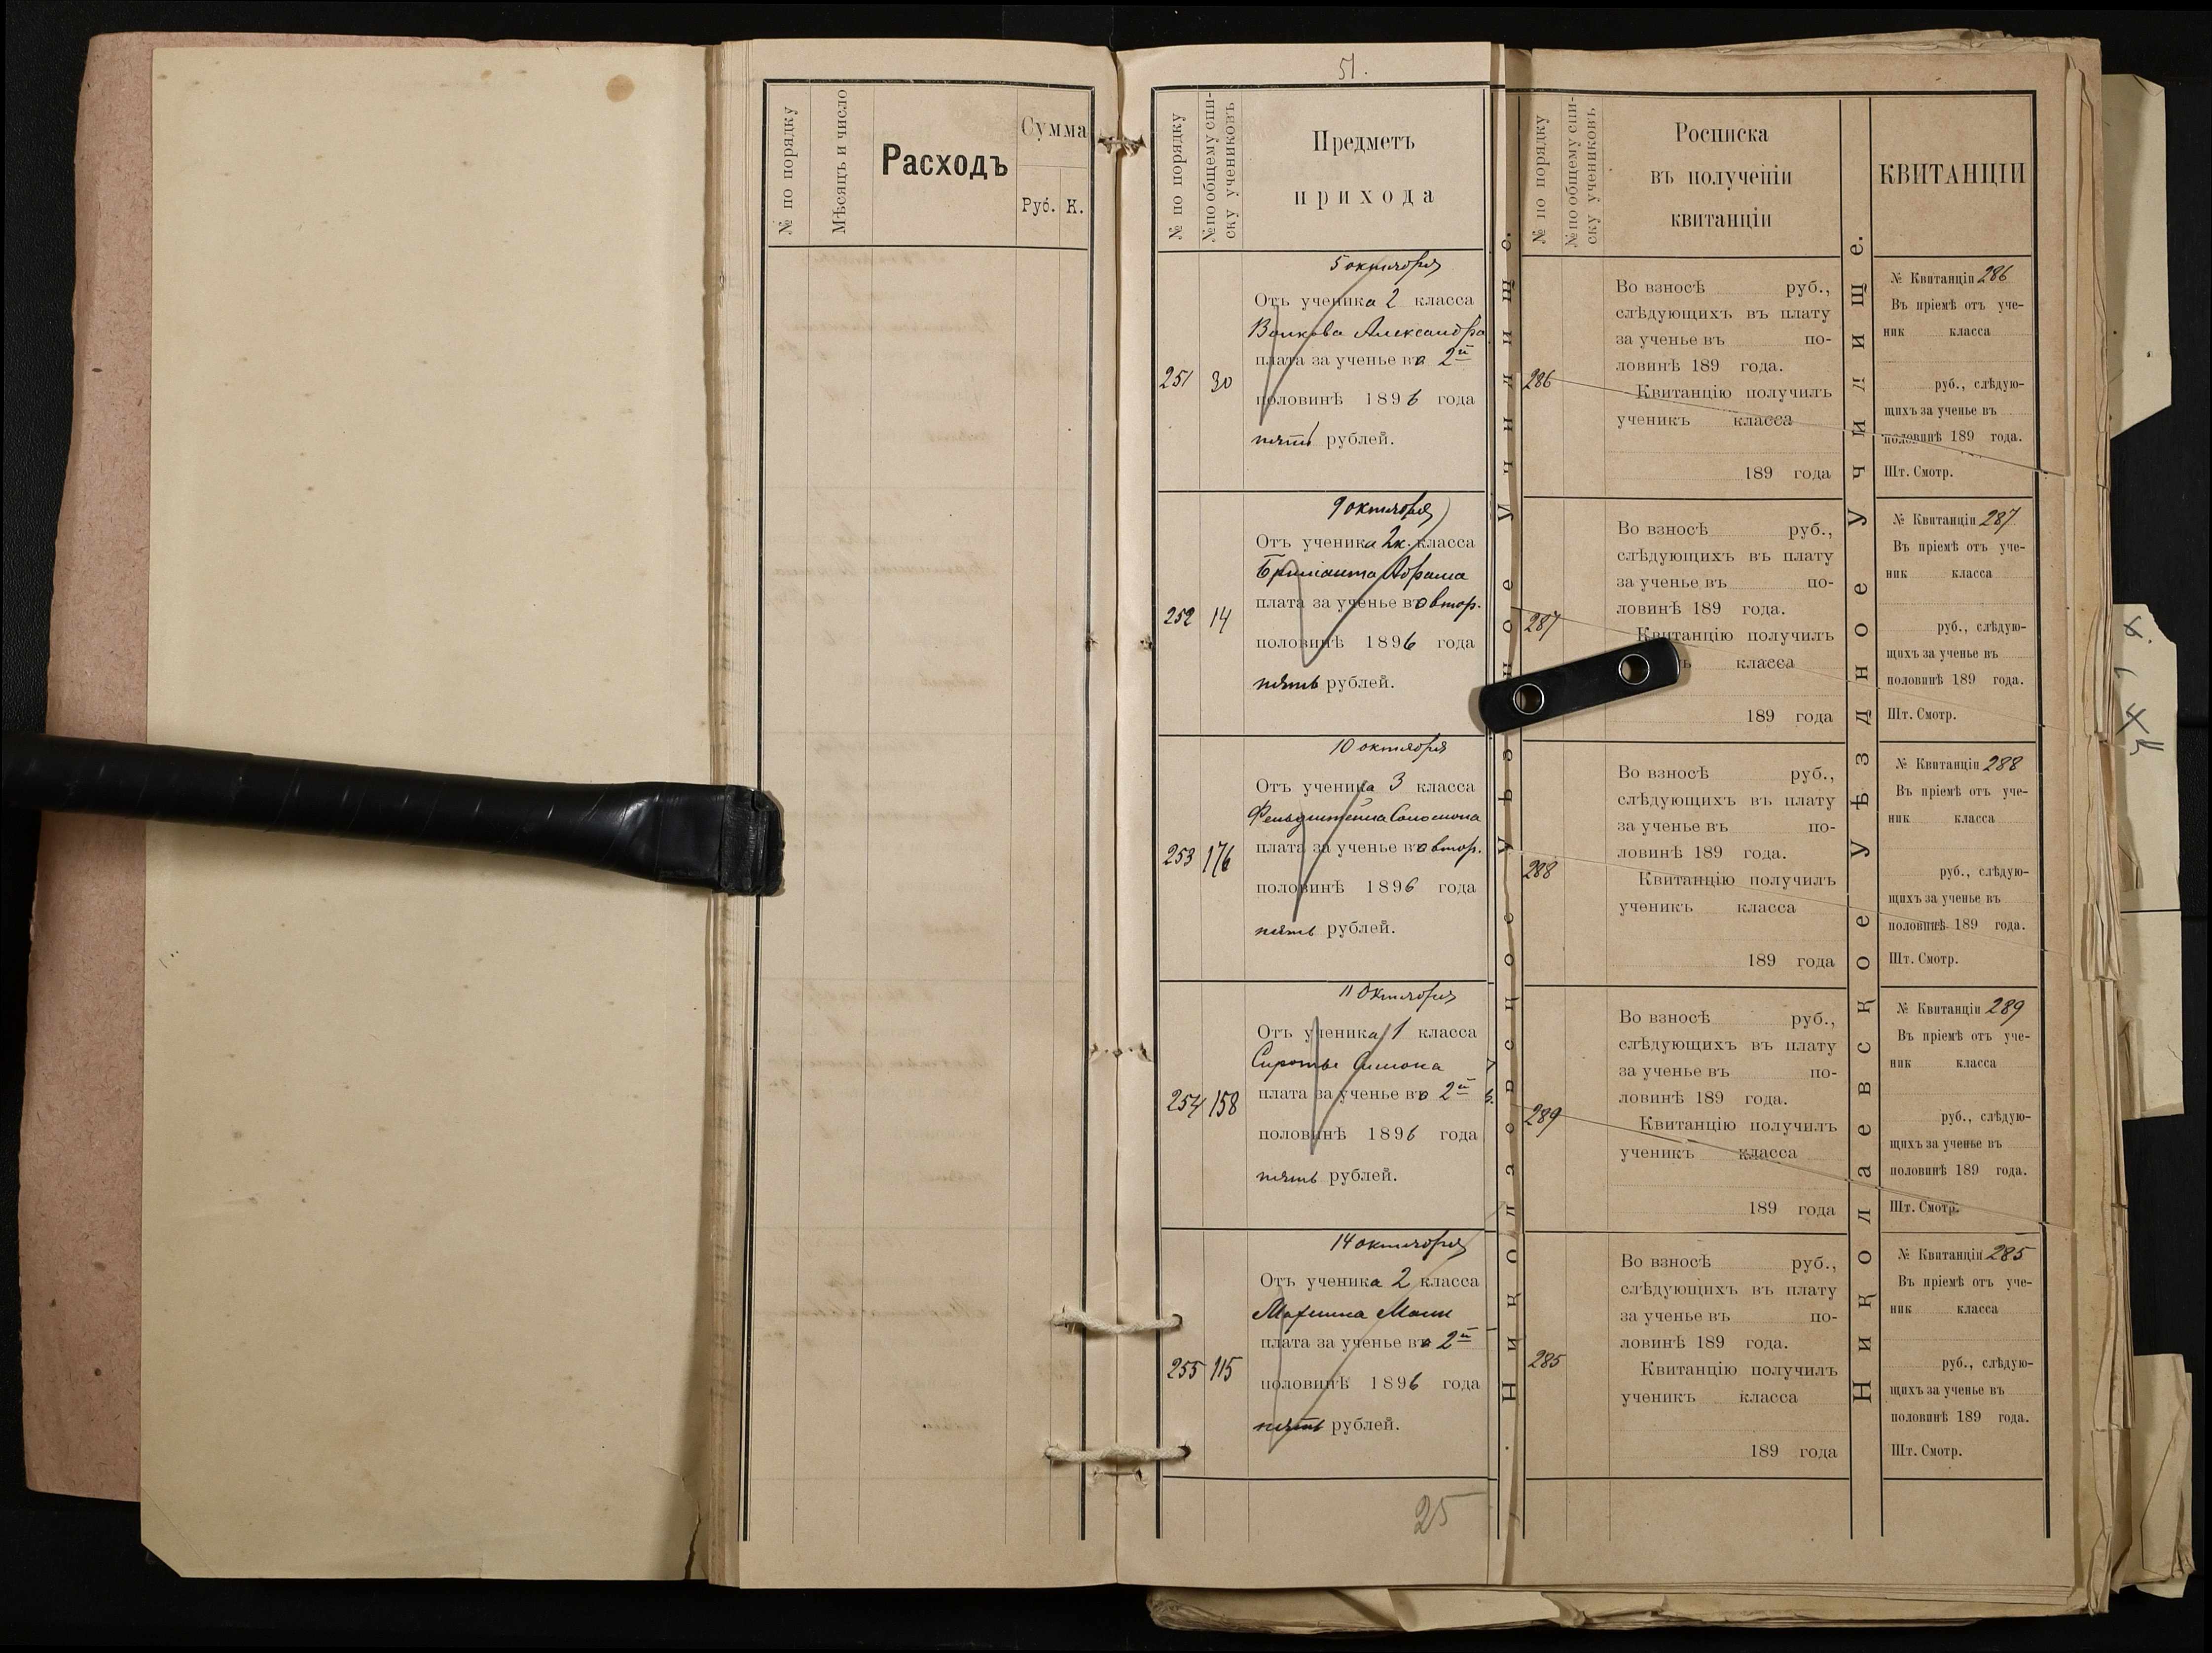 № по порядку
Мѣсяцъ и число
Расходъ
Сумма
Руб. К.
51.
№ по порядку
№ по общему спи-
ску учениковъ
Предметъ
прихода
5 октября
Отъ ученика 2 класса
Волкова Александра
плата за ученье во 2й
251 30
половинѣ 1896 года
пять рублей.
9 октября
Отъ ученика 2к. класса
Брилианта Абрама
плата за ученье во втор.
252 14
половинѣ 1896 года
пять рублей.
10 октября
Отъ ученика 3 класса
Фельдштейна Соломона
плата за ученье во втор.
253 176
половинѣ 1896 года
пять рублей.
11 Октября
Отъ ученика 1 класса
Сироты
плата за ученье во 2й
254 158
половинѣ 1896 года
пять рублей.
14 октября
Отъ ученика 2 класса
плата за ученье во 2й
255 115
половинѣ 1896 года
пять рублей.
25
Николаевское Уѣздное Училище.
№ по порядку
№ по общему спи-
ску учениковъ
Росписка
въ полученіи
квитанціи
Во взносѣ руб.,
слѣдующихъ въ плату
за ученье въ по-
ловинѣ 189 года.
286
Квитанцію получилъ
ученикъ класса
189 года
Во взносѣ руб.,
слѣдующихъ въ плату
за ученье въ по-
ловинѣ 189 года.
287
Квитанцію получилъ
ъ класса
189 года
Во взносѣ руб.,
слѣдующихъ въ плату
за ученье въ по-
ловинѣ 189 года.
288
Квитанцію получилъ
ученикъ класса
189 года
Во взносѣ руб.,
слѣдующихъ въ плату
за ученье въ по-
ловинѣ 189 года.
289
Квитанцію получилъ
ученикъ класса
189 года
Во взносѣ руб.,
слѣдующихъ въ плату
за ученье въ по-
ловинѣ 189 года.
285
Квитанцію получилъ
ученикъ класса
189 года
Николаевское Уѣздное Училище.
КВИТАНЦІИ
№ Квитанціи 286
Въ пріемѣ отъ уче-
ник класса
руб., слѣдую-
щихъ за ученье въ
половинѣ 189 года.
Шт. Смотр.
№ Квитанціи 287
Въ пріемѣ отъ уче-
ник класса
руб., слѣдую-
щихъ за ученье въ
половинѣ 189 года.
Шт. Смотр.
№ Квитанціи 288
Въ пріемѣ отъ уче-
ник класса
руб., слѣдую-
щихъ за ученье въ
половинѣ 189 года.
Шт. Смотр.
№ Квитанціи 289
Въ пріемѣ отъ уче-
ник класса
руб., слѣдую-
щихъ за ученье въ
половинѣ 189 года.
Шт. Смотр.
№ Квитанціи 285
Въ пріемѣ отъ уче-
ник класса
руб., слѣдую-
щихъ за ученье въ
половинѣ 189 года.
Шт. Смотр.